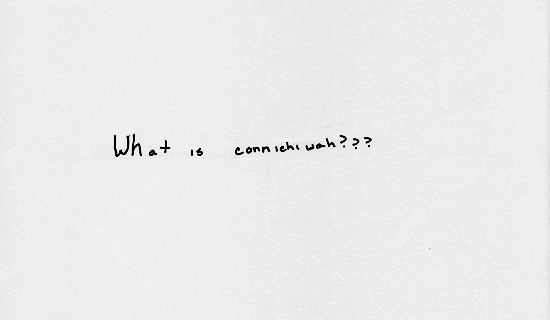 What is connichi wah???